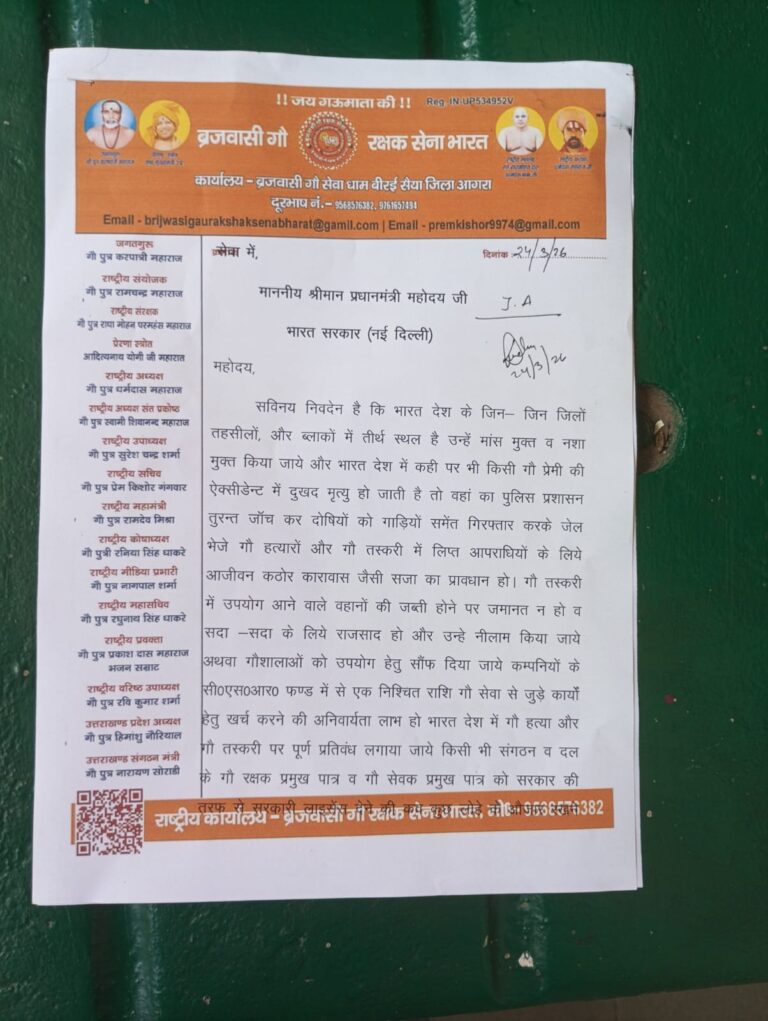 !! जय गऊमाता की !!
Reg. IN-UP534952V
ब्रजवासी गौ रक्षक सेना भारत
कार्यालय - ब्रजवासी गौ सेवा धाम बीरई सैया जिला आगरा
दूरभाष नं.- 9568576382, 9761657494
Email - brijwasigaurakshaksenabharat@gamil.com | Email - premkishor9974@gmail.com
जगतगुरू
गौ पुत्र करपात्री महाराज
राष्ट्रीय संयोजक
गौ पुत्र रामचन्द्र महाराज
राष्ट्रीय संरक्षक
गौ पुत्र राधा मोहन परमहंस महाराज
प्रेरणा स्त्रोत
आदित्यनाथ योगी जी महाराज
राष्ट्रीय अध्यक्ष
गौ पुत्र धर्मदास महाराज
राष्ट्रीय अध्यक्ष संत प्रकोष्ठ
गौ पुत्र स्वामी शिवानन्द महाराज
राष्ट्रीय उपाध्यक्ष
गौ पुत्र सुरेश चन्द्र शर्मा
राष्ट्रीय सचिव
गौ पुत्र प्रेम किशोर गंगवार
राष्ट्रीय महामंत्री
गौ पुत्र रामदेव मिश्रा
राष्ट्रीय कोषाध्यक्ष
गौ पुत्री रनिया सिंह धाकरे
राष्ट्रीय मीडिया प्रभारी
गौ पुत्र नागपाल शर्मा
राष्ट्रीय महासचिव
गौ पुत्र रघुनाथ सिंह धाकरे
राष्ट्रीय प्रवक्ता
गौ पुत्र प्रकाश दास महाराज
भजन सम्राट
राष्ट्रीय वरिष्ठ उपाध्यक्ष
गौ पुत्र रवि कुमार शर्मा
उत्तराखण्ड प्रदेश अध्यक्ष
गौ पुत्र हिमांशु नौरियाल
उत्तराखण्ड संगठन मंत्री
गौ पुत्र नारायण सोराडी
सेवा में,
दिनांक :24/3/26
माननीय श्रीमान प्रधानमंत्री महोदय जी
J.A
भारत सरकार (नई दिल्ली)
24/3/26
महोदय,
सविनय निवदेन है कि भारत देश के जिन– जिन जिलों
तहसीलों, और ब्लाकों में तीर्थ स्थल है उन्हें मांस मुक्त व नशा
मुक्त किया जाये और भारत देश में कही पर भी किसी गौ प्रेमी की
ऐक्सीडेन्ट में दुखद मृत्यु हो जाती है तो वहां का पुलिस प्रशासन
तुरन्त जॉच कर दोषियों को गाड़ियों समेंत गिरफ्तार करके जेल
भेजे गौ हत्यारों और गौ तस्करी में लिप्त आपराधियों के लिये
आजीवन कठोर कारावास जैसी सजा का प्रावधान हो। गौ तस्करी
में उपयोग आने वाले वहानों की जब्ती होने पर जमानत न हो व
सदा –सदा के लिये राजसाद हो और उन्हे नीलाम किया जाये
अथवा गौशालाओं को उपयोग हेतु सौंफ दिया जाये कम्पनियों के
सी0एस0आर0 फण्ड में से एक निश्चित राशि गौ सेवा से जुड़े कार्यो
हेतु खर्च करने की अनिवार्यता लाभ हो भारत देश में गौ हत्या और
गौ तस्करी पर पूर्ण प्रतिवंध लगाया जाये किसी भी संगठन व दल
के गौ रक्षक प्रमुख पात्र व गौ सेवक प्रमुख पात्र को सरकार की
तरफ से सरकारी लाइसेंस
राष्ट्रीय कार्यालय - ब्रजवासी गौ रक्षक सेना भारत, मो0- 9568576382